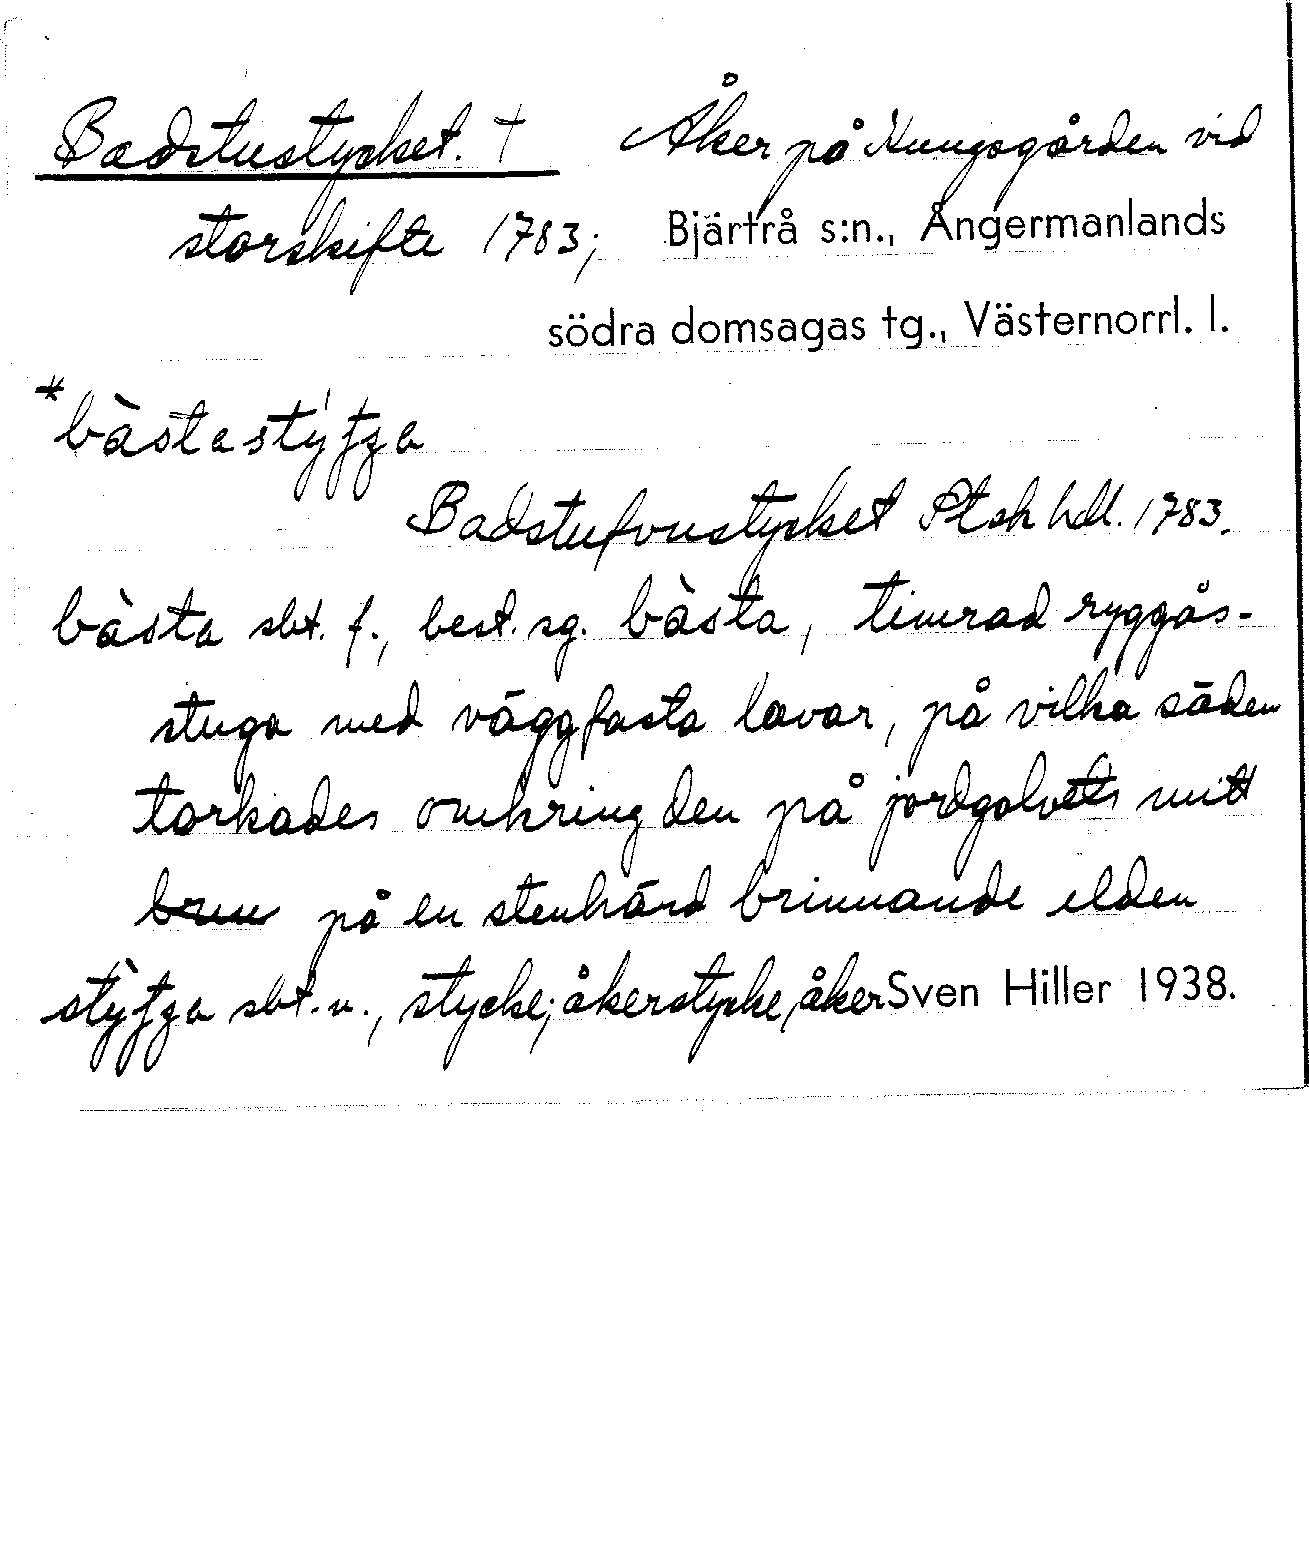 Badstustycket. † Åker på Kungsgården vid
storskifte 1783; Bjärtrå s:n., Ångermanlands
södra domsagas tg., Västernorrl. l.
*bàstastýʃʒa
Badstufvustycket Stsk hdl. 1783.
bàsta sbt. f., best. sg. bàsta, timrad ryggås-
stuga med väggfasta lavar, på vilka säden
torkades omkring den på jordgolvets mitt
på en stenhärd brinnande elden
stỳʃʒa sbt. n., stycke; åkerstycke, åker Sven Hiller 1938.